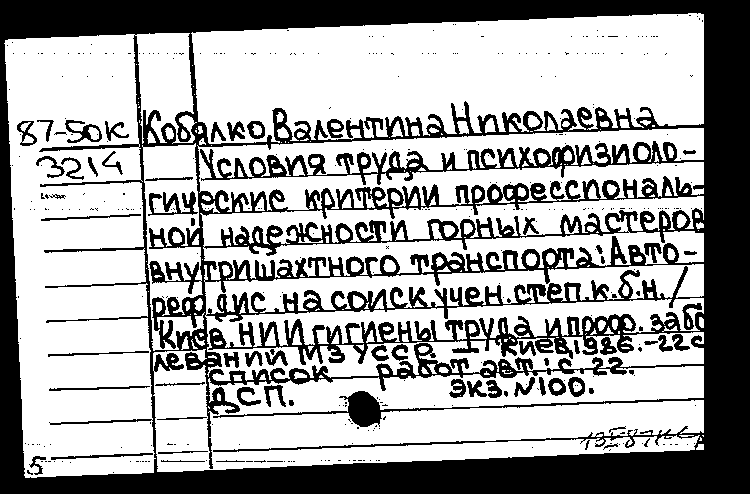 87-50к Кобялко, Валентина Николаевна.
3214 Условия труда и психофизиоло-
гические критерии профессиональ-
ной надежности горных мастеров
внутришахтного транспорта: Авто-
реф. дис. на соиск. учен. степ. к.б.н. /
Киев. НИИ гигиены труда и проф. забо
леваний МЗ УССР — Киев, 1986. - 22 с
список работ авт.: с. 22.
ДСП. экз. №100.
5